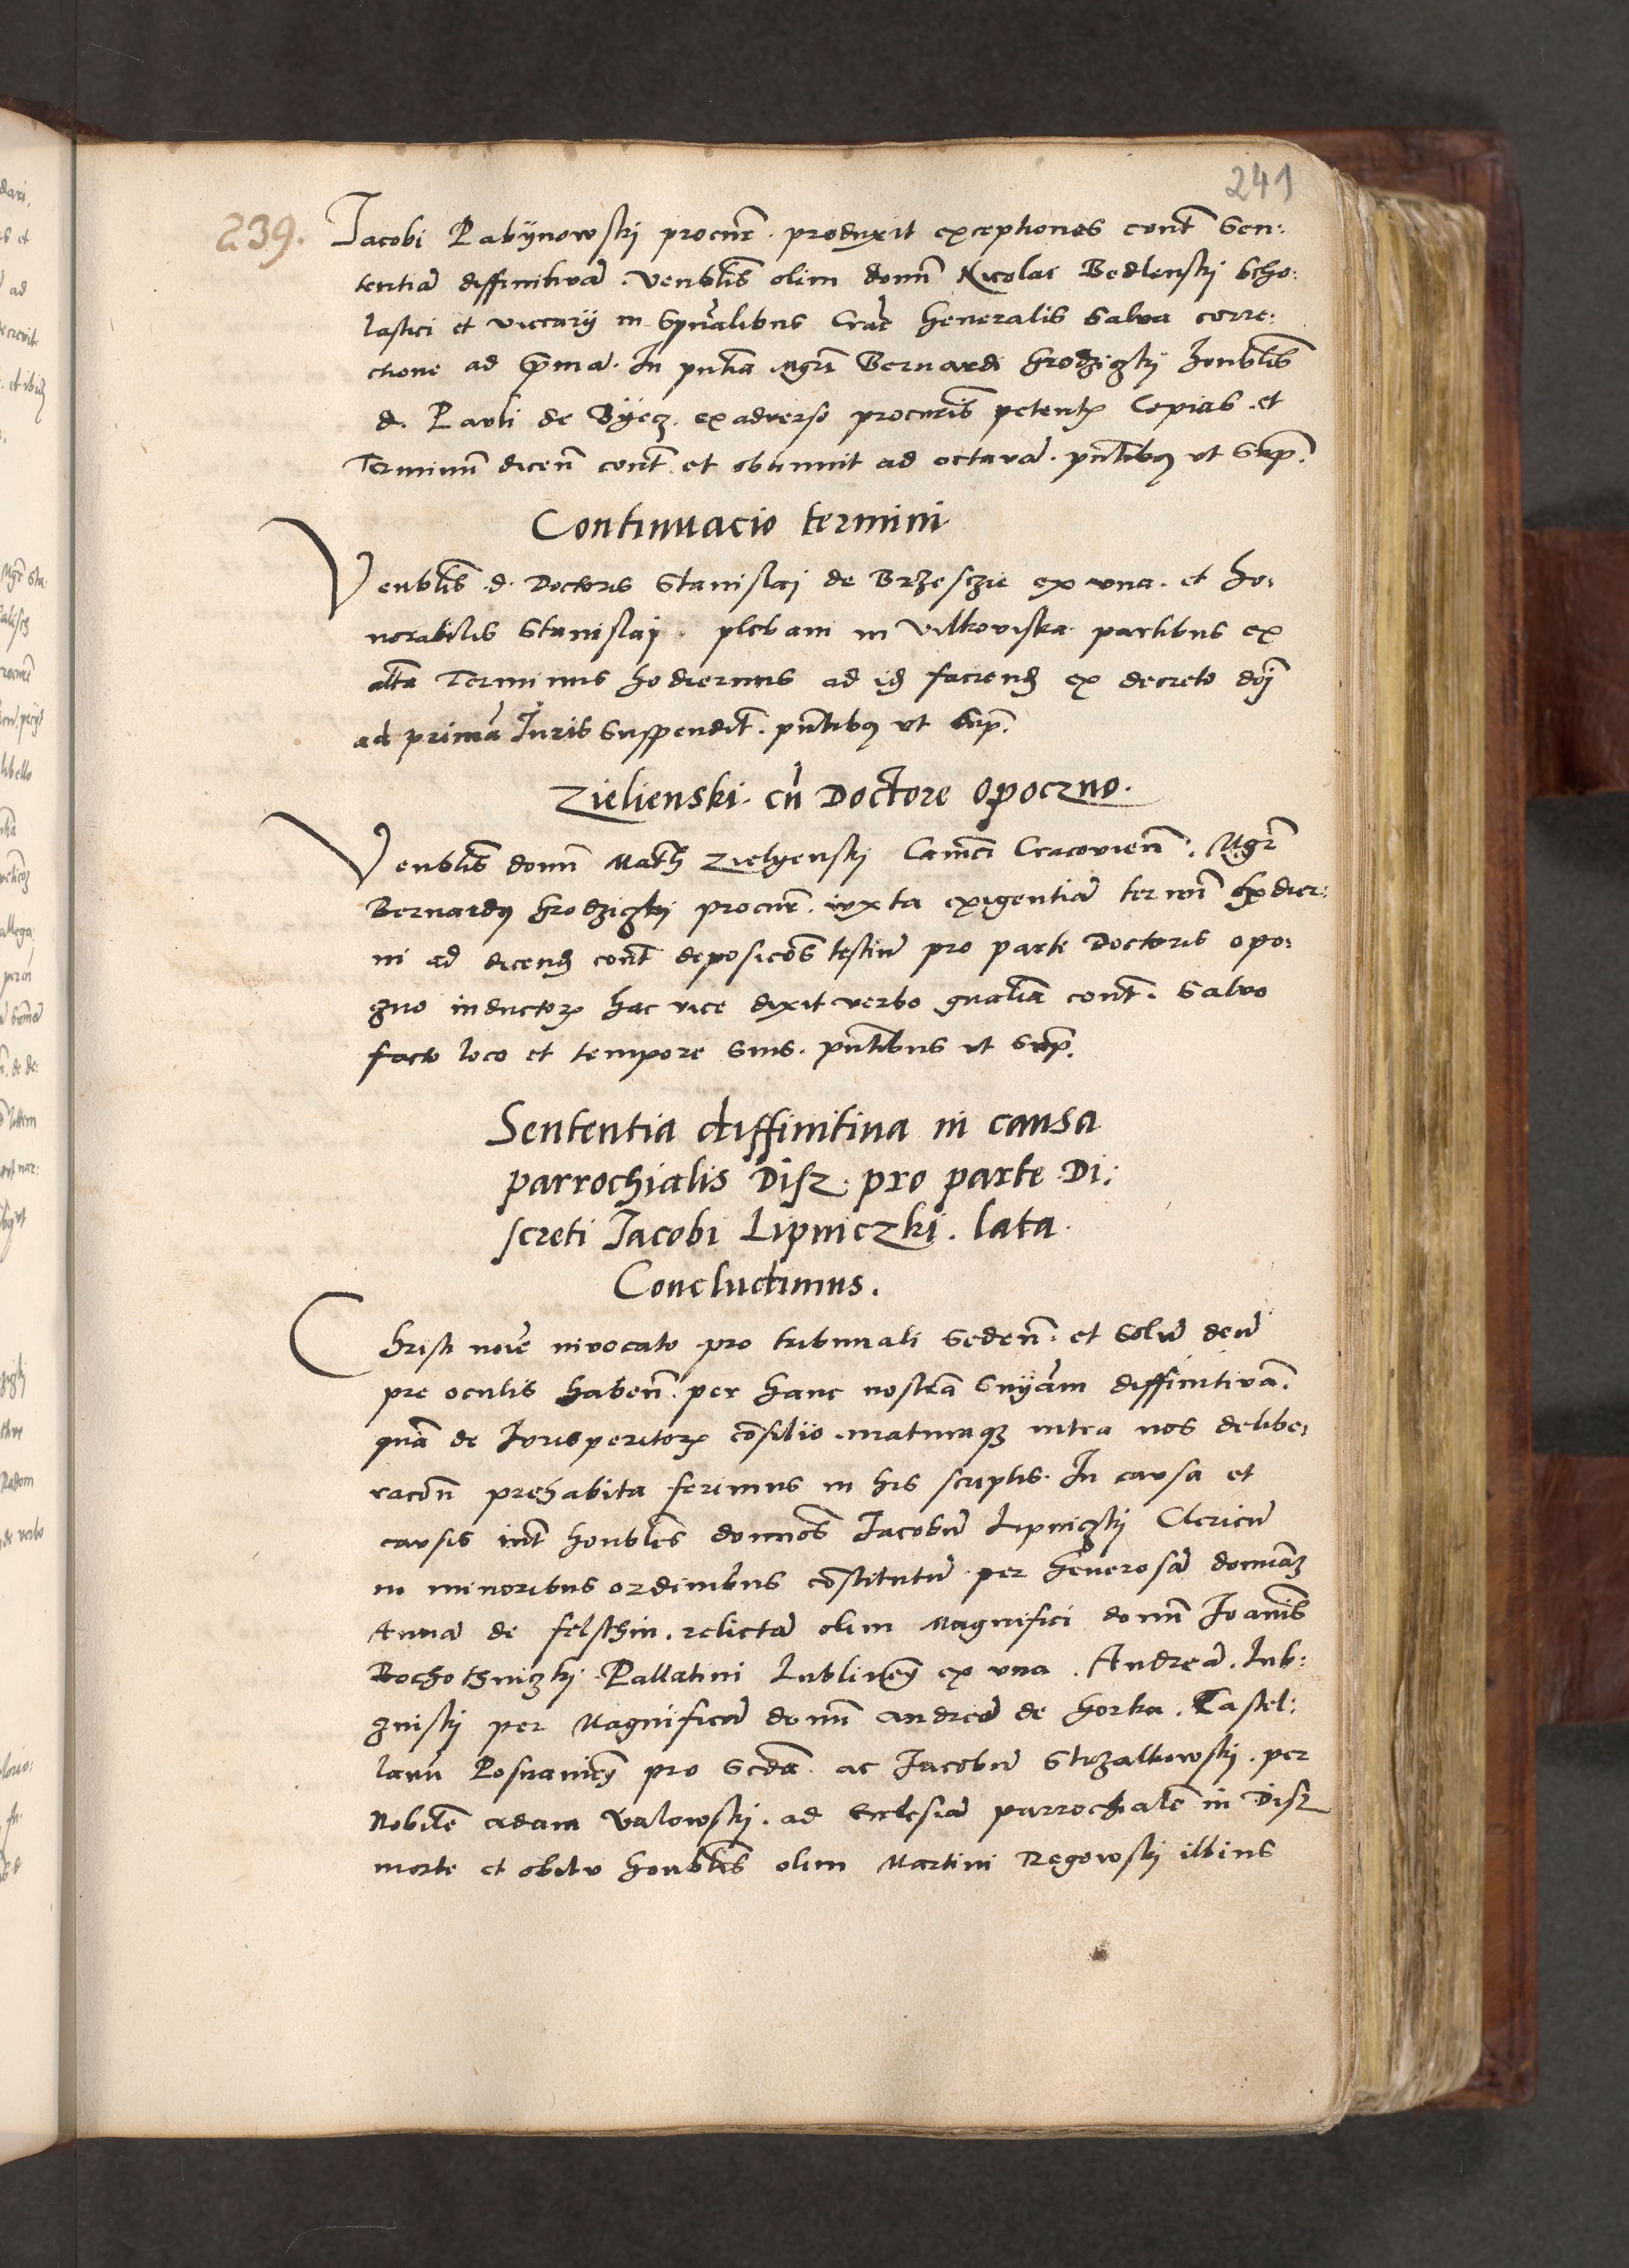 241
239.
Jacobi Pabÿnowskj procur̃. produxit exceptiones cont̃ Sen:
tentiã diffinitiuã. Venblis̃ olim domñ Nicolai Bedlenskj Scho:
lastici et vicarij in Spũalibus Crac̃ Generalis Salua corre:
ctione ad p̃mã. In pñtia Mgrĩ Bernardi Grodzičzkj honblis̃
d. Pauli de Bÿecz. ex aduerso procuris̃ petentꝭ Copias. et
Terminũ dicenñ cont̃. et obtinuit ad octauã. pñtibꝰ vt Sup̃.
Continuacio termini
Venblis̃ d. Doctoris Stanislaj de Brzesczie ex vna. et Ho:
norabilis Stanislaj. plebani in Vilkoviska partibus ex
altã Terminus hodiernus ad id faciend̃ ex decreto dñj
ad primã Juris Suspendit̃. pñtibꝰ vt Sup̃.
Zielienski. cũ Doctore Opoczno.
Venblis̃ domñ Math̃ Zielyenskj Canncĩ Cracovieñ. Mgr̃
Bernardꝰ Grodziczkj procur̃. iuxta exigentiã termĩ hodier:
ni ad dicend̃ cont̃ deposicõs̃ testiũ pro parte Doctoris Opo:
czno inductorꝝ hac vice dixit verbo gnãlia cont̃. Saluo
facto loco et tempore suis. pñtibus vt Sup̃.
Sententia diffinitiua in causa
parrochialis Disz. pro parte Di:
screti Jacobi Lipniczki. lata
Concludimus.
Christi noĩe inuocato pro tribunali Sedeñ. et Solũ deũ
pre oculis habeñ. per hanc nostrã Snỹam diffinitiuã.
quã de Jurisperitorꝝ cõsilio maturaqꝫ intra nos delibe:
racoñ prehabita ferimus in his scriptis. In causa et
causis int̃ honblẽs dominos̃ Jacobũ Lipniczkj Clericũ
in minoribus ordinibus cõstitutũ per Generosã dominã
Annã de felsthin. relictã olim Magnifici domñ Joanis̃
Bochothniczkj Pallatini Lublineñ ex vna. Andreã. Lub:
zniskj per Magnificũ domñ andreã de Gorka. Castel:
lanũ Posnanieñ pro Scdã. ac Jacobũ Strzalkowskj. per
Nobilẽ adam Valowskj. ad Ecclesiã parrochialẽ in Disz
morte et obitu honblis̃ olim Martini Regowskj illius